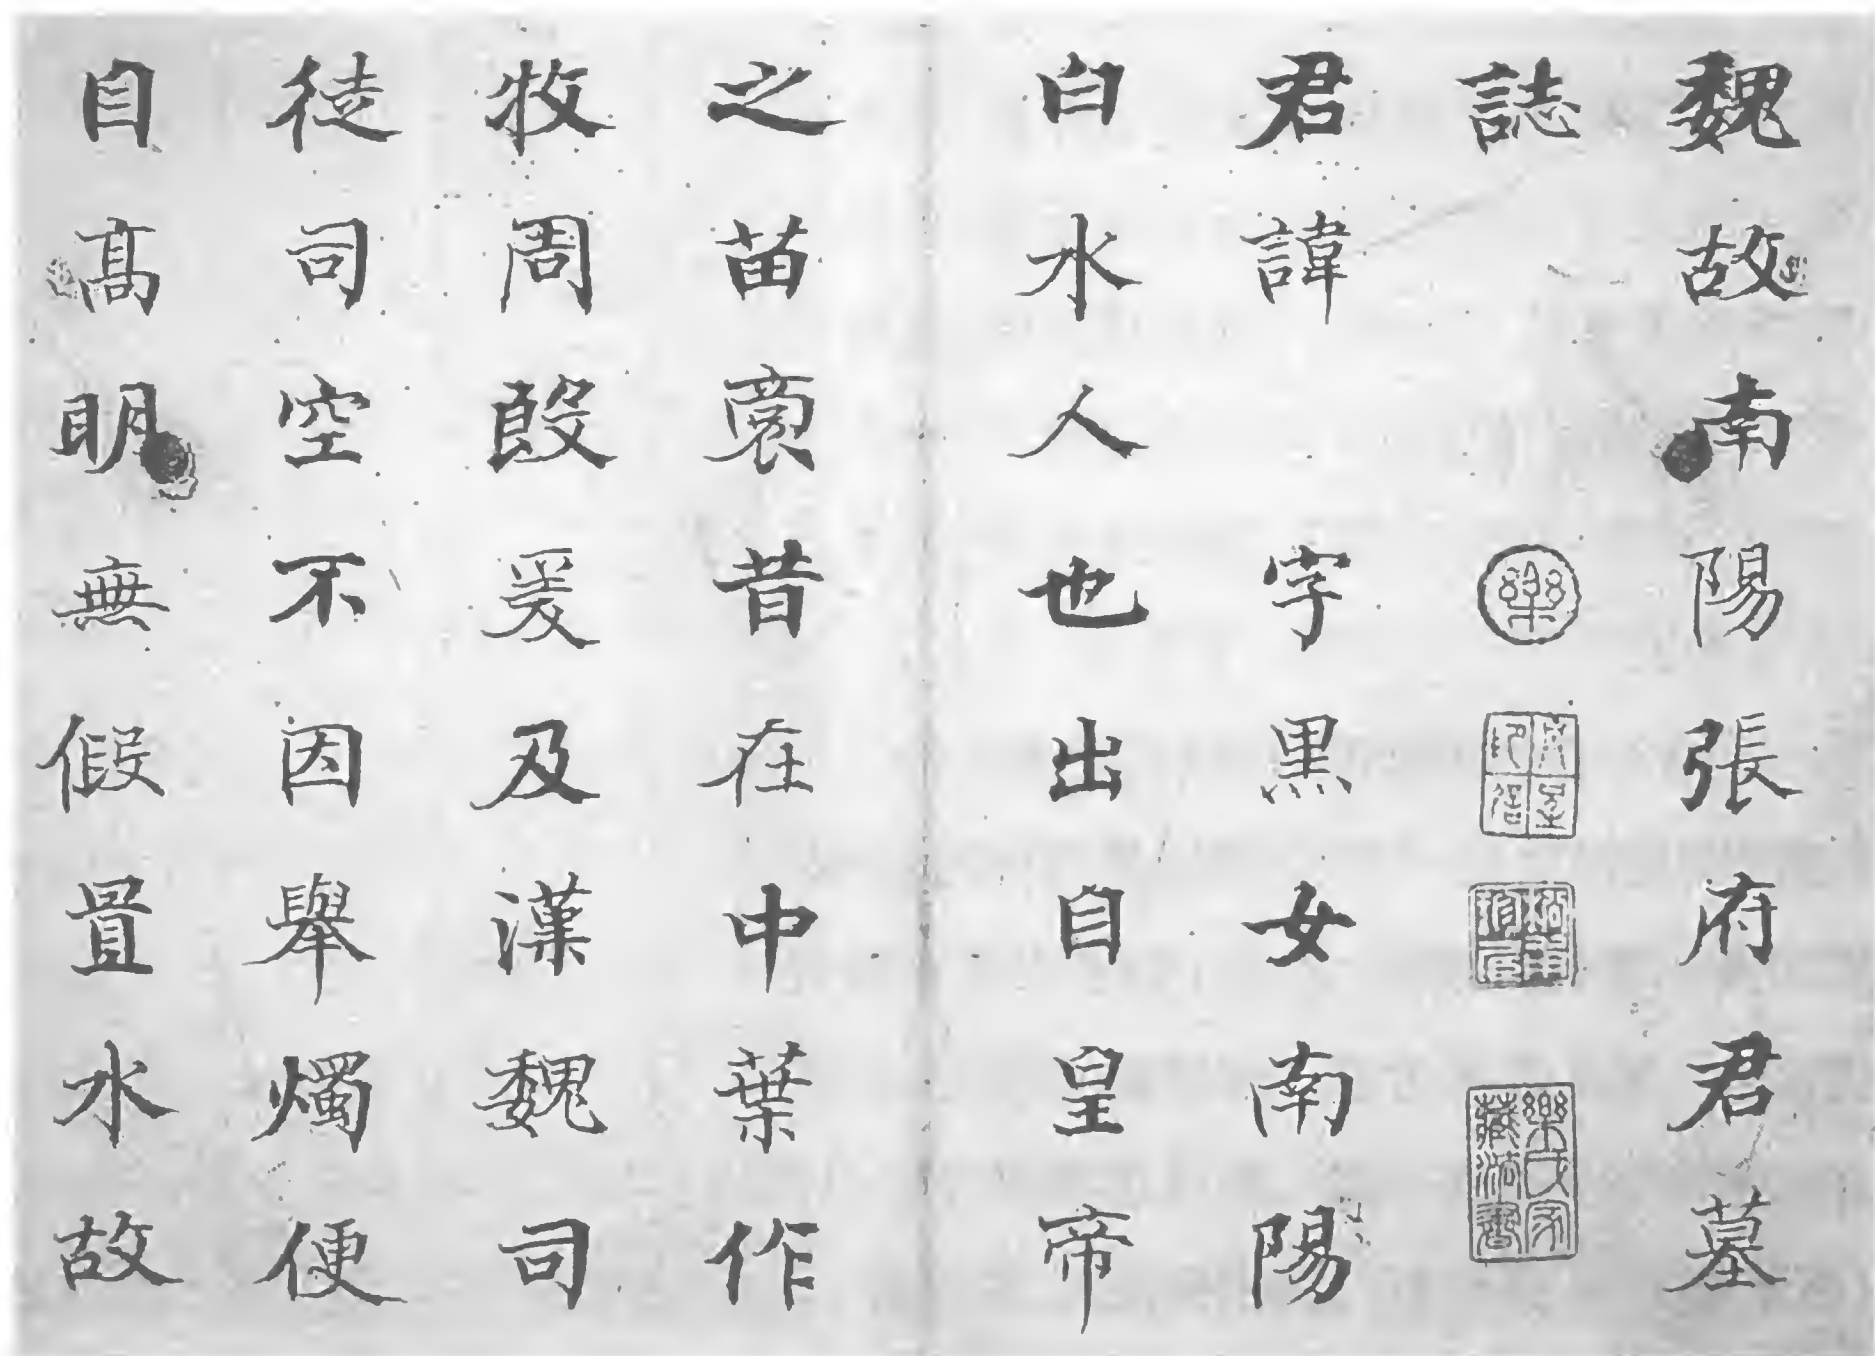 魏故南陽張府君墓
誌
樂
樂氏家藏法書
君諱 字黒女南陽
白水人也出自皇帝
之苗裔昔在中葉作
牧周殷爰及漢魏司
徒司空不因舉燭便
自髙眀無假置水故